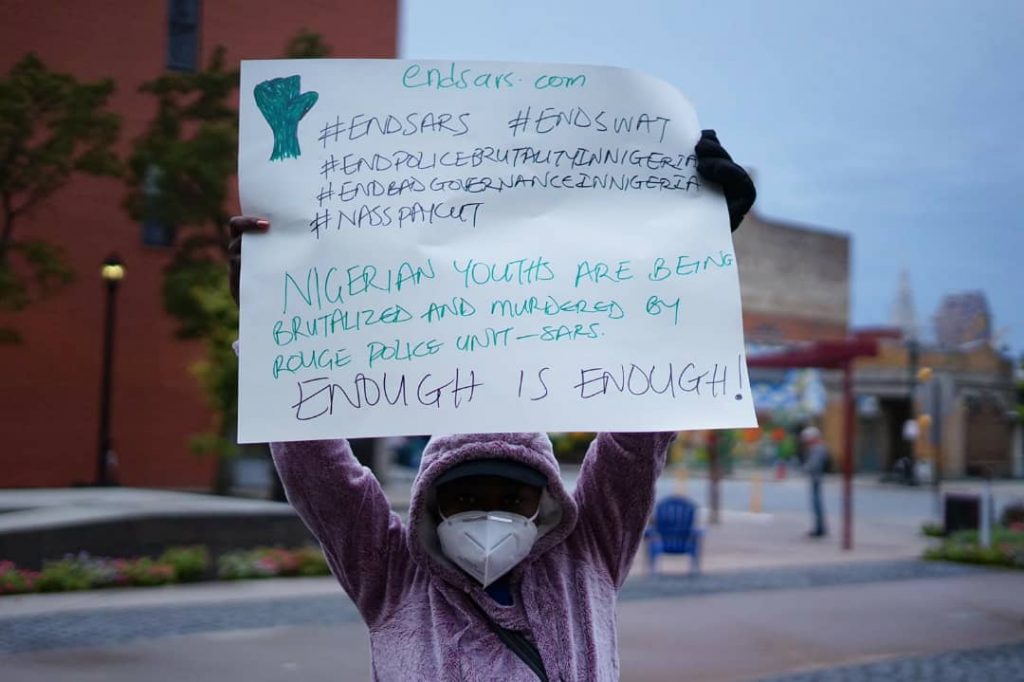 endsars.com
#ENDSARS #ENDSWAT
#ENDPOLICEBRUTALITYINNIGERIA
#ENDBADGOVERNANCEINNIGERIA
#NASSPAYCUT
NIGERIAN YOUTHS ARE BEING
BRUTALIZED AND MURDERED BY
ROUGE POLICE UNIT-SARS.
ENOUGH IS ENOUGH!